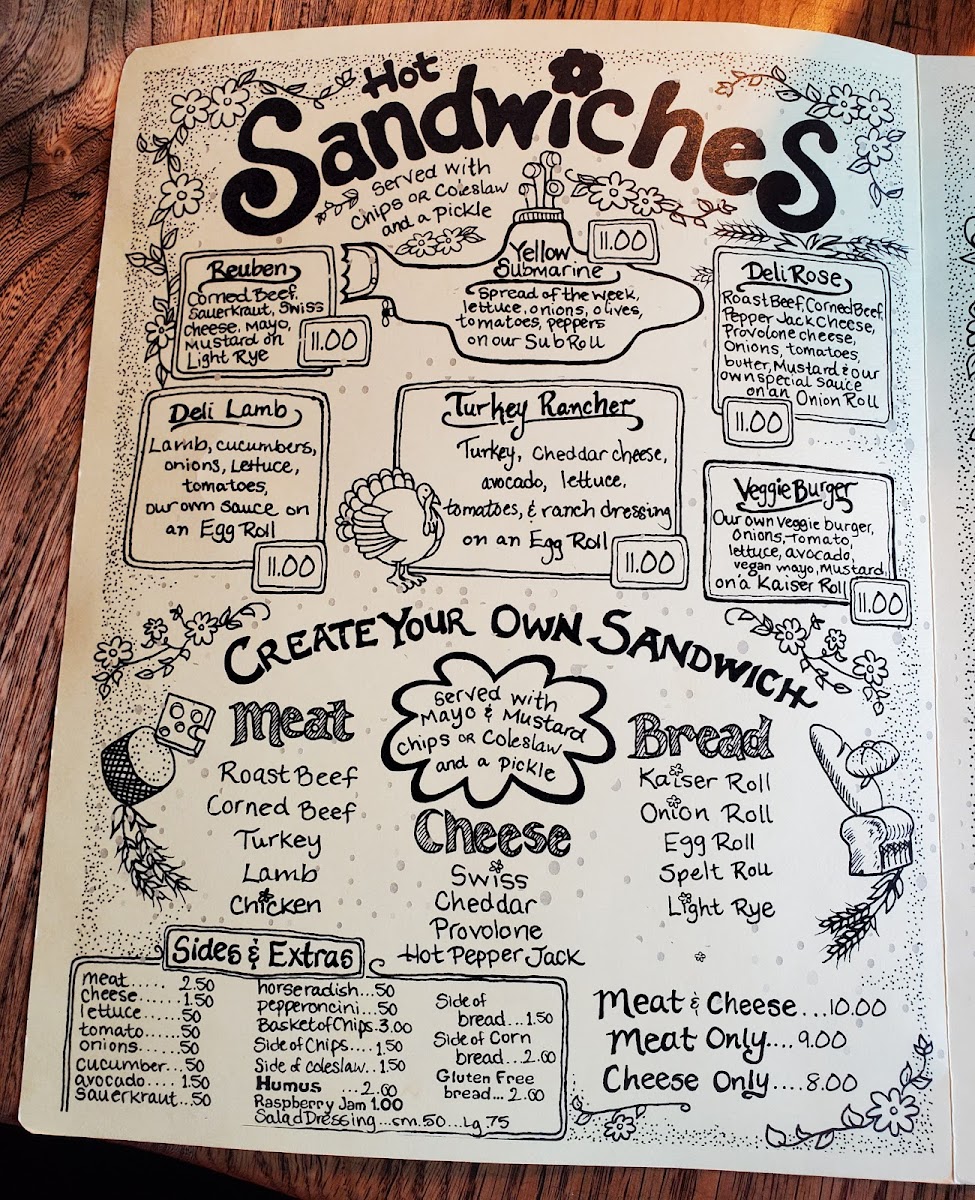 Hot
Sandwiches
Served with
Chips or Coleslaw
and a pickle
Reuben
Corned Beef,
Sauerkraut, Swiss
cheese, Mayo,
Mustard on
Light Rye
11.00
Yellow
Submarine
11.00
Spread of the week,
lettuce, onions, olives,
tomatoes, peppers
on our Sub Roll
Deli Rose
Roast Beef, Corned Beef
Pepper Jack Cheese,
Provolone cheese,
Onions, tomatoes,
butter, Mustard & our
own special sauce
on an Onion Roll
11.00
Deli Lamb
Lamb, cucumbers,
onions, Lettuce,
tomatoes,
our own sauce on
an Egg Roll
11.00
Turkey Rancher
Turkey, Cheddar cheese,
avocado, lettuce,
tomatoes, & ranch dressing
on an Egg Roll
11.00
Veggie Burger
Our own veggie burger,
Onions, Tomato,
lettuce, avocado,
vegan mayo, Mustard
on a Kaiser Roll
11.00
Create Your Own Sandwich
Served with
Mayo & Mustard
chips or Coleslaw
and a pickle
Meat
Roast Beef
Corned Beef
Turkey
Lamb
Chicken
Cheese
Swiss
Cheddar
Provolone
Hot Pepper Jack
Bread
Kaiser Roll
Onion Roll
Egg Roll
Spelt Roll
Light Rye
Sides & Extras
meat..... 2.50
cheese...... 1.50
lettuce..... .50
tomato..... .50
onions...... .50
cucumber... .50
avocado.... 1.50
sauerkraut... .50
horseradish... .50
pepperoncini... .50
Basket of Chips. 3.00
Side of Chips.... 1.50
Side of coleslaw.. 1.50
Humus ... 2.00
Raspberry Jam 1.00
Salad Dressing... sm .50 ... Lg .75
Side of
bread... 1.50
Side of Corn
bread... 2.00
Gluten Free
bread... 2.00
Meat & Cheese ... 10.00
Meat Only.... 9.00
Cheese Only.... 8.00